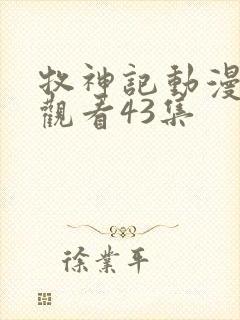 牧神記動漫
觀看43集
徐業平